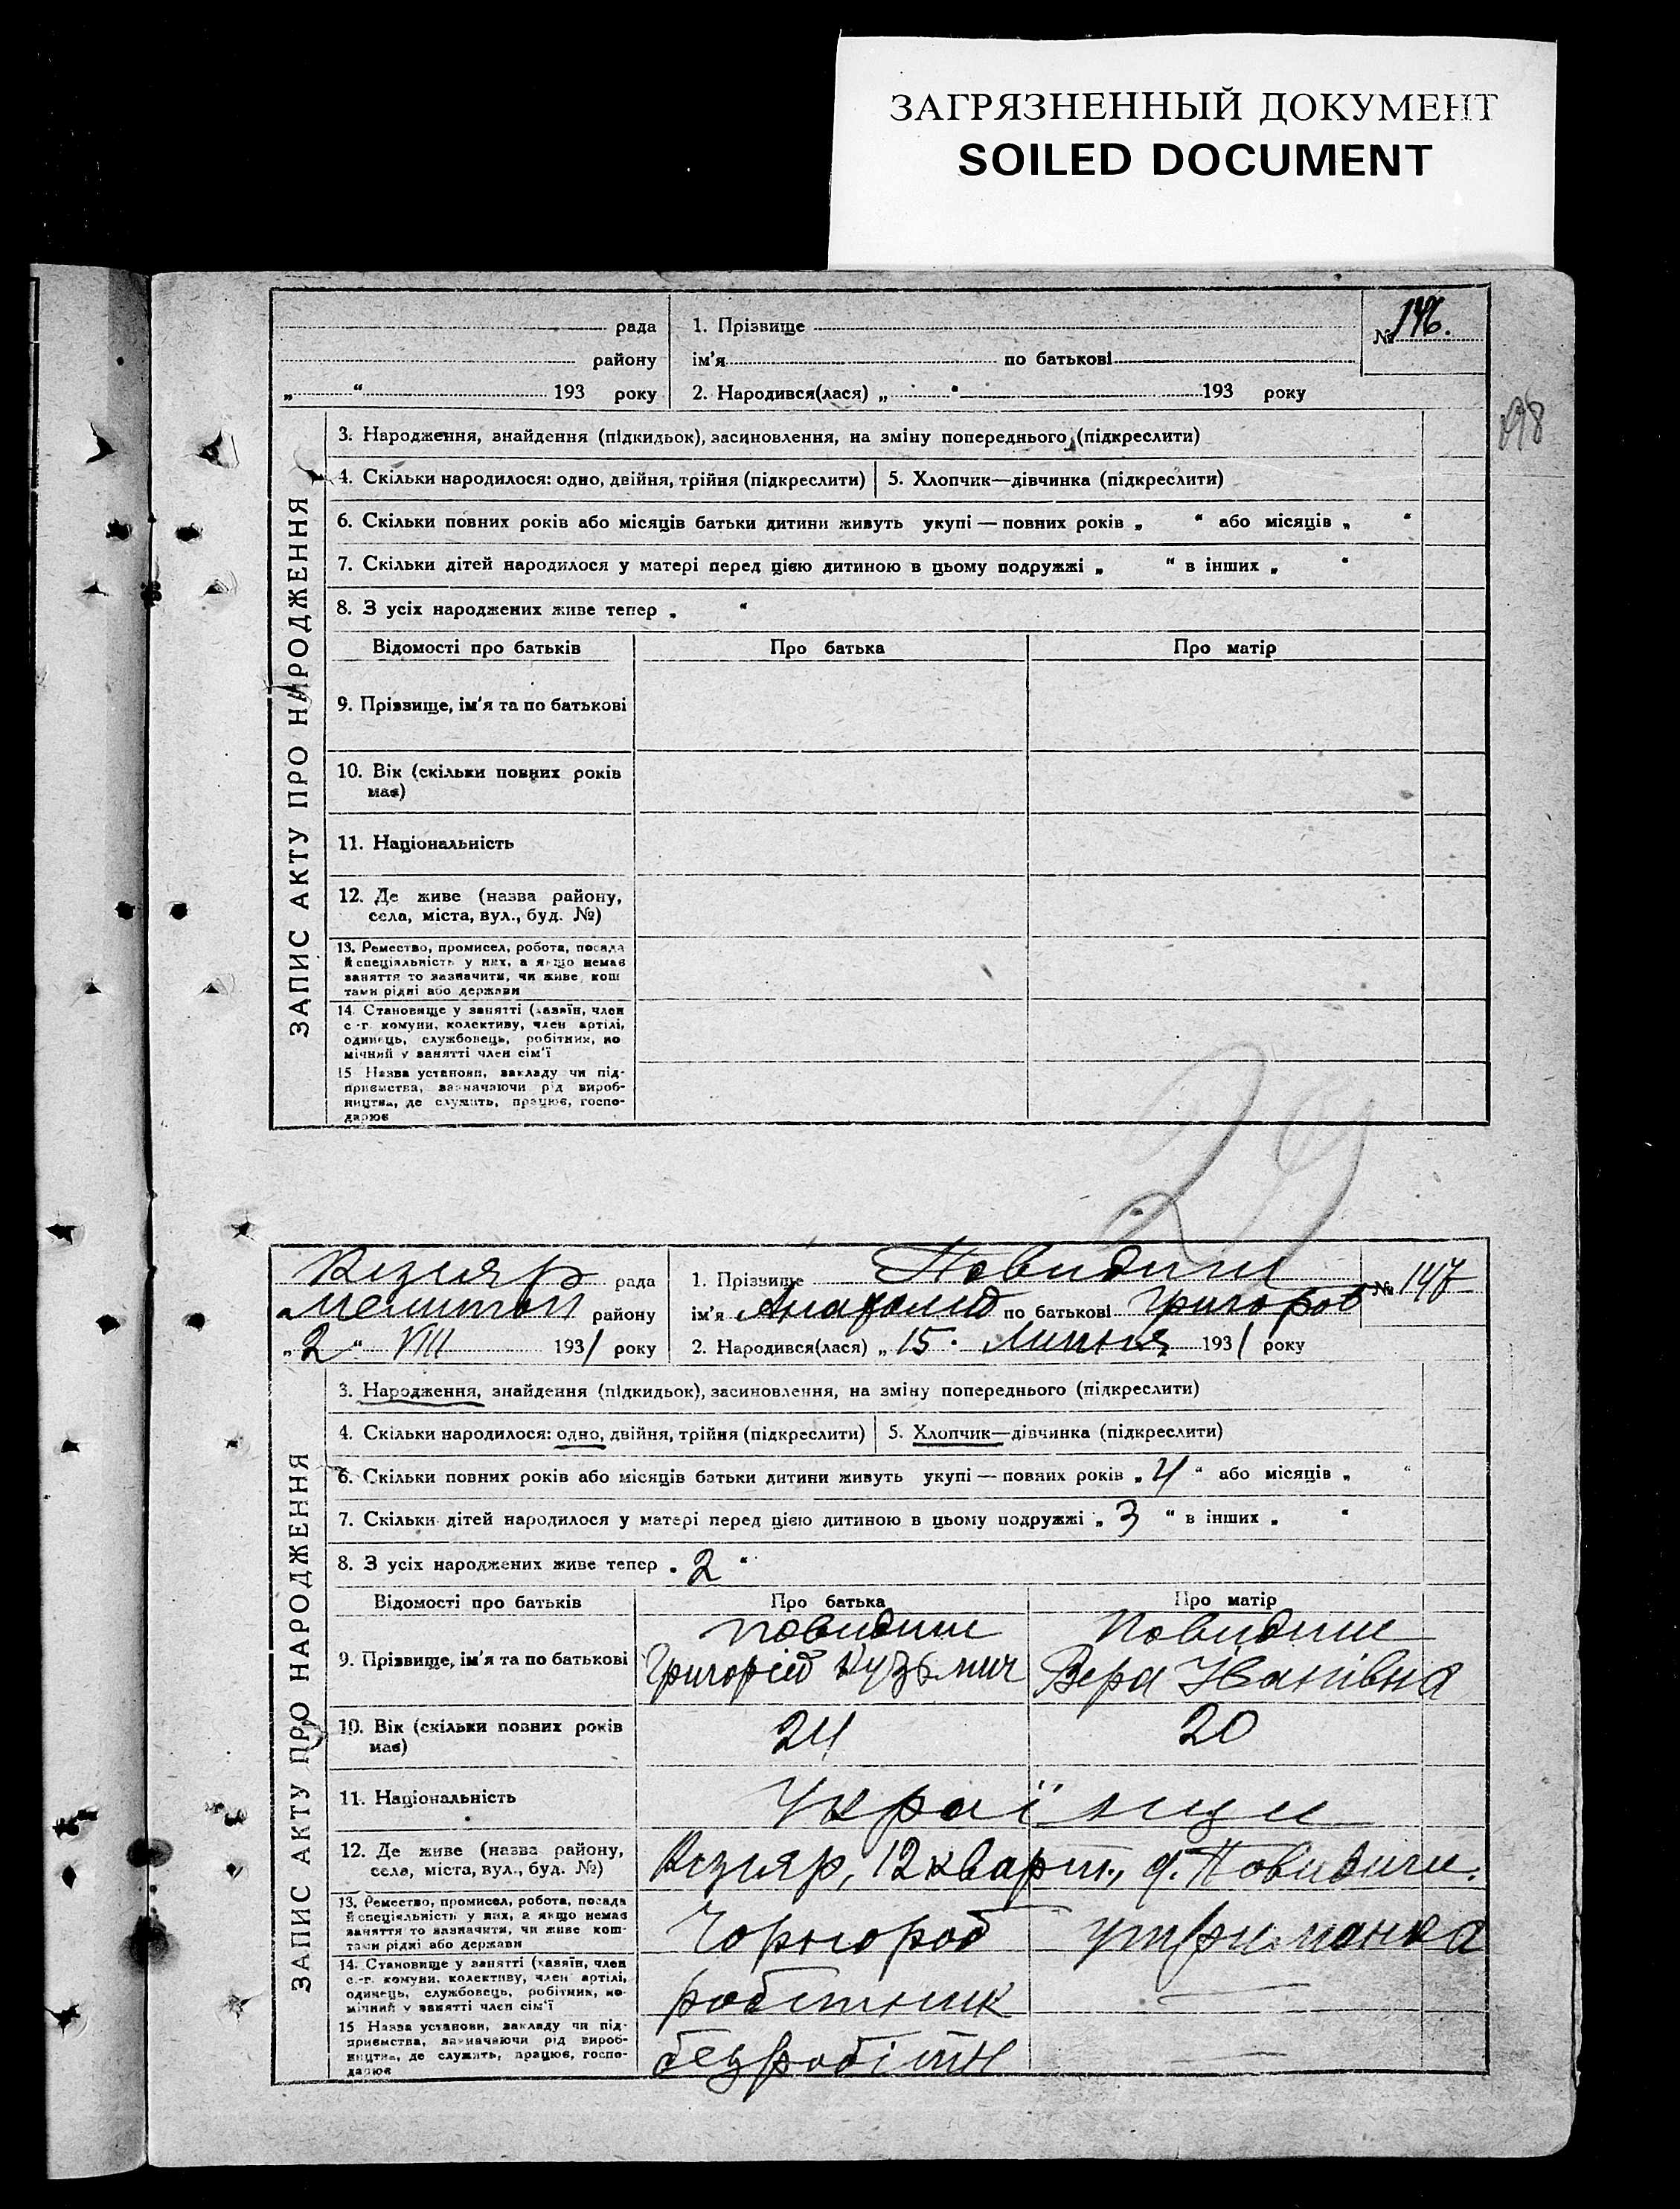 ЗАГРЯЗНЕННЫЙ ДОКУМЕНТ
SOILED DOCUMENT
рада
району
„ “ 193 року
1. Прізвище
ім'я по батькові
2. Народився(лася) „ “ 193 року
№ 146.
198
ЗАПИС АКТУ ПРО НАРОДЖЕННЯ
3. Народження, знайдення (підкидьок), засиновлення, на зміну попереднього (підкреслити)
4. Скільки народилося: одно, двійня, трійня (підкреслити)
5. Хлопчик—дівчинка (підкреслити)
6. Скільки повних років або місяців батьки дитини живуть укупі — повних років „ “ або місяців „ “
7. Скільки дітей народилося у матері перед цією дитиною в цьому подружжі „ “ в інших „ “
8. З усіх народжених живе тепер „ “
Відомості про батьків Про батька Про матір
9. Прізвище, ім'я та по батькові
10. Вік (скільки повних років
має)
11. Національність
12. Де живе (назва району,
села, міста, вул., буд. №)
13. Ремество, промисел, робота, посада
й спеціяльність у них, а якщо немає
заняття то зазначити, чи живе кош
тами рідні або держави
14. Становище у занятті (хазяїн, член
с.-г. комуни, колективу, член артілі,
одинець, службовець, робітник, по
мічний у занятті член сім'ї
15 Назва установи, закладу чи під-
приємства, зазначаючи рід вироб-
ництва, де служить, працює, госпо-
дарює
29
Кізіяр рада
Мелитоп району
„2“ VIII 1931 року
1. Прізвище Повидиш
ім'я Анатолій по батькові Григоров
2. Народився(лася) „15. Липня 1931 року
№ 147
ЗАПИС АКТУ ПРО НАРОДЖЕННЯ
3. Народження, знайдення (підкидьок), засиновлення, на зміну попереднього (підкреслити)
4. Скільки народилося: одно, двійня, трійня (підкреслити)
5. Хлопчик—дівчинка (підкреслити)
6. Скільки повних років або місяців батьки дитини живуть укупі — повних років „4“ або місяців „ “
7. Скільки дітей народилося у матері перед цією дитиною в цьому подружжі „3 “ в інших „ “
8. З усіх народжених живе тепер „2 “
Відомості про батьків Про батька Про матір
9. Прізвище, ім'я та по батькові
Повидиш
Григорій Кузьмич
Повидиш
Вера Іванівна
10. Вік (скільки повних років
має)
24 20
11. Національність Українци
12. Де живе (назва району,
села, міста, вул., буд. №)
Кізіяр, 12 кварт., д. Повидиш.
13. Ремество, промисел, робота, посада
й спеціяльність у них, а якщо немає
заняття то зазначити, чи живе кош-
тами рідні або держави
Чорнороб утриманка
14. Становище у занятті (хазяїн, член
с.-г. комуни, колективу, член артілі,
одинець, службовець, робітник, по-
мічний у занятті член сім'ї
робітник —
15 Назва установи, закладу чи під-
приємства, зазначаючи рід вироб-
ництва, де служить, працює, госпо-
дарює
безробітн — —